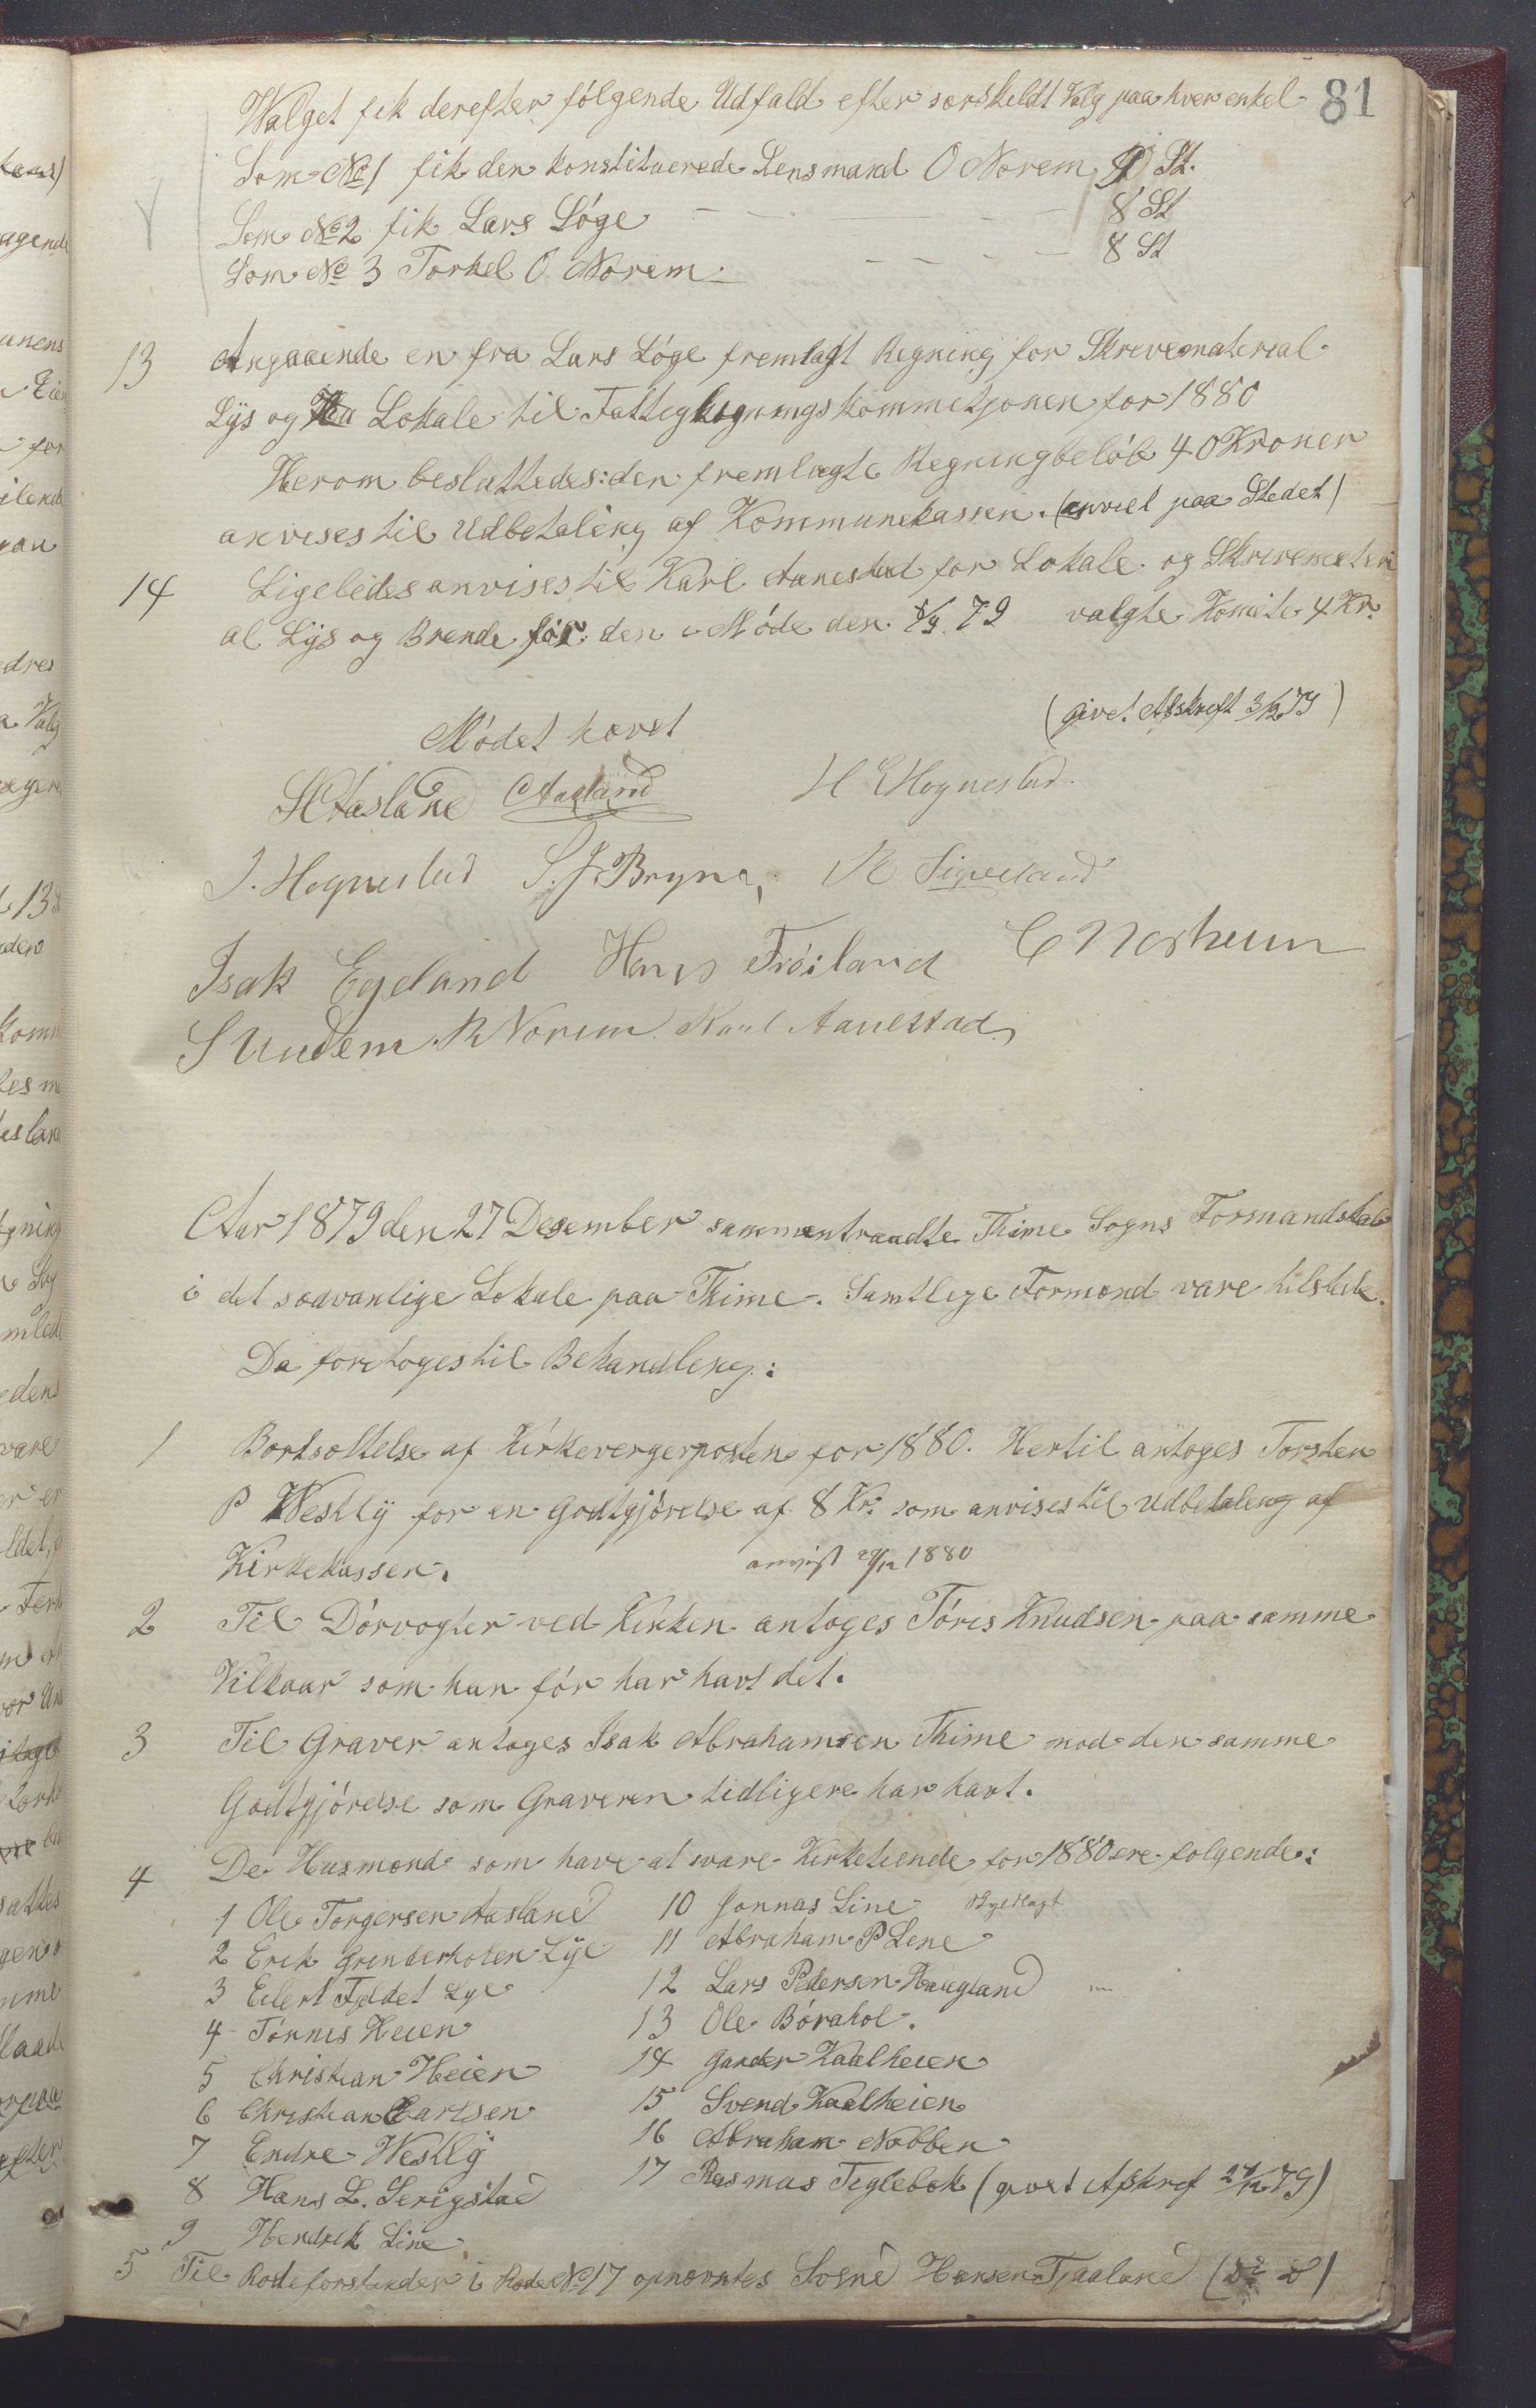 81
Valget fik derefter følgende Udfald efter særskeldt Valg paa hver enkel
Som No 1 fik den konstituerede Lensmand O Norem 9 St.
Som No 2 fik Lars Löge — — — — 8 St
Som No 3 Torkel O Norem — — — — 8 St
13 Angaaende en fra Lars Löge fremlagt Regning for Skrivematerial
Lÿs og Lokale til Fattigligningskommitsjonen for 1880
Herom besluttedes: den fremlagte Regningbelöb 40 Kroner
anvises til Udbetaling af Kommunekassen. (anviel paa Stedet)
14 Ligeledes anvises til Karl Aanestad for Lokale og Skrivemateri
al Lÿs og Brende för den i Möde den 8/9 79 valgte Komite 4 Kr.
(givet Afskreft 3/12 79)
Mödet hævet
H Aasland Aasland H E Hognestad.
J. Hognestad S. J Bryne, R Sigveland
Isak Egeland Hans Fröiland C Nesheim
S Undem. R Norem. Karl Aanestad
Aar 1879 den 27 Desember sammentraadte Thime Sogns Formandskab
i det sædvanlige Lokale paa Thime. Samtlige Formænd vare tilstede.
Da foretoges til Behandling:
1 Bortsættelse af Kirkevergerposten for 1880. Hertil antoges Torsten
P Westlÿ for en Godtgjörelse af 8 Kr. som anvises til Udbetaleng af
Kirkekassen. anvist 29/12 1880
2 Til Dörvogter ved Kirken antoges Töres Knudsen paa samme
Vilkaar som han för har havt det.
3 Til Graver antoges Isak Abrahamsen Thime mod den samme
Godtgjörelse som Graveren tidligere har havt.
4 De Husmænd som have at svare Kirketiende for 1880 ere følgende:
1 Ole Torgersen Aasland
2 Erik Grenderholen Lÿe
3 Eilert Fjeldet Lye
4 Tönnes Heien
5 Christian Heien
6 Christian Carlsen
7 Endre Westlÿ
8 Hans L. Serigstad
9 Hendrik Line
10 Jonnas Line
11 Abraham P Lene
12 Lars Pedersen Haugland
13 Ole Börahol.
14 Gander Kaalheien
15 Svend Kaalheien
16 Abraham Nobben
17 Rasmus Teglebak (givet Afskref 27/12 79)
5 Til Rodeforstander i Rode No 17 opnævntes Sosne Hansen Tjaaland